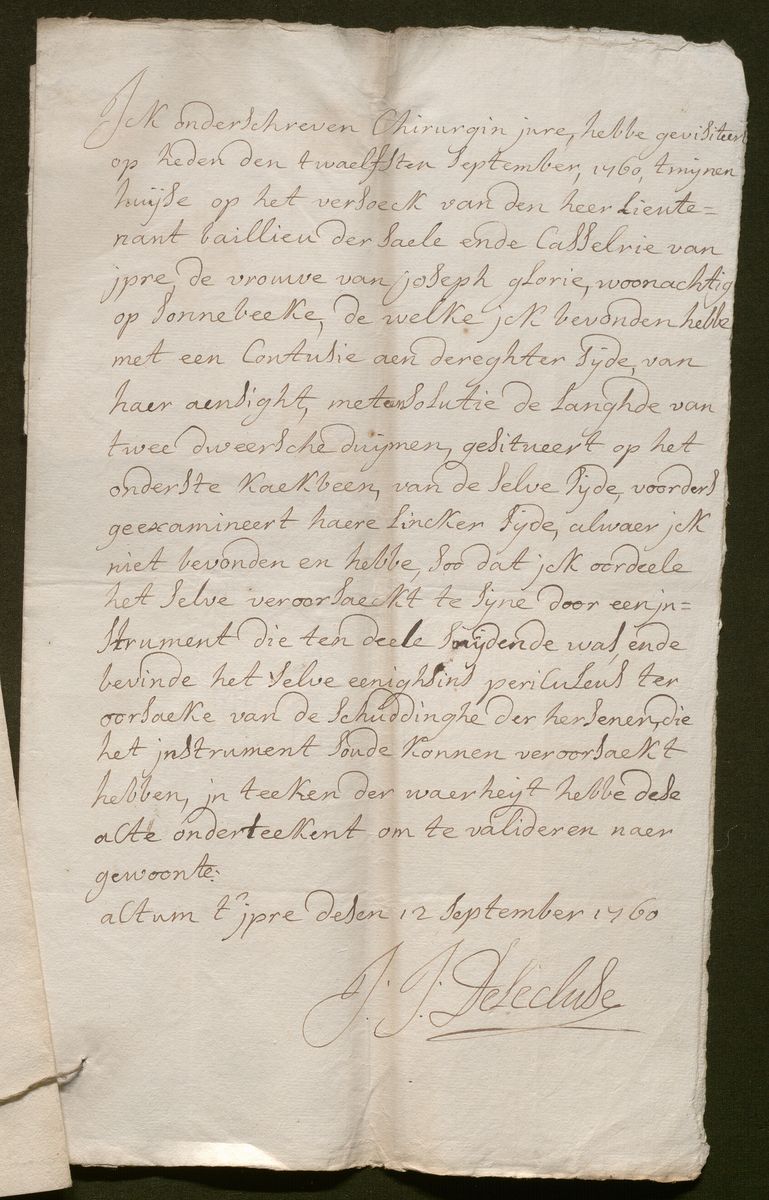 Ick onderschreven Chirurgin jpre, hebbe gevisiteert
op heden den twaelfsten September, 1760, tmijnen
huijse op het versoeck van den heer Lieute=
nant bailliеu der saele ende Casselrie van
jpre, de vrouwe van joseph glorie, woonachtig
op sonnebeeke, de welke jck bevonden hebbe
met een Contusie aen dereghter sijde, van
haer aensight, met solutie de langhde van
twee dweersche duijmen, gesitueert op het
onderste kaekbeen, van de selve sijde, voorders
geexamineert haere lincker sijde, alwaer jck
niet bevonden en hebbe, soo dat jck oordeele
het selve veroorsaeckt te sijne door een jn=
strument die ten deele snijdende was, ende
bevinde het selve eenighsins periculeus ter
oorsaeke van de schuddinghe der hersenen, die
het jnstrument soude konnen veroorsaekt
hebben, jn teeken der waerheijt hebbe dese
acte onderteekent om te valideren naer
gewoonte.
actum tr jpre desen 12 september 1760
J. J. Delécluse